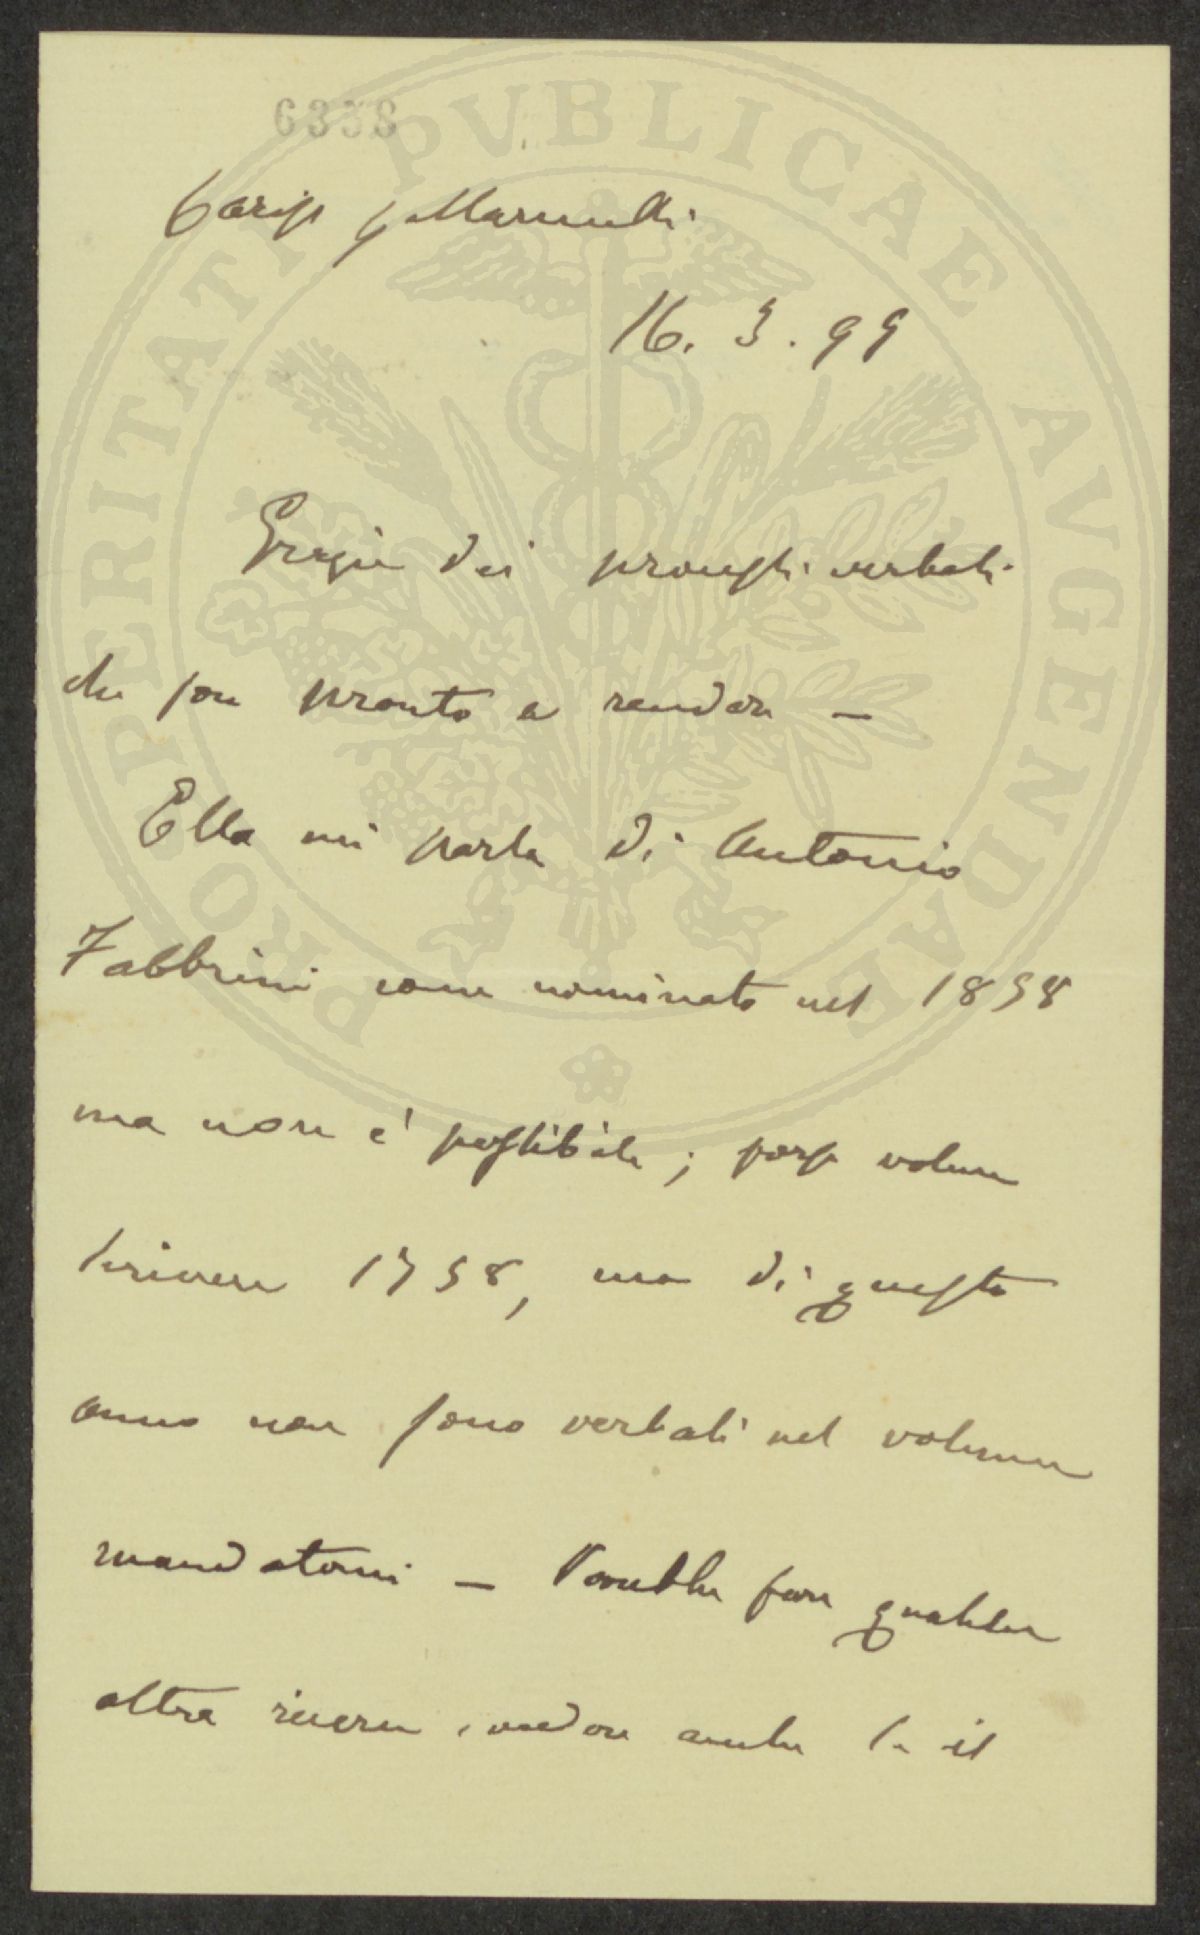 6338
PROSPERITATI PVBLICAE AVGENDAE
Caris. g. Marucelli
16. 3. 99
Grazie dei processi verbali
che son pronto a rendere —
Ella mi parla di Antonio
Fabbrini come nominato nel 1898
ma non è possibile; forse voleva
scrivere 1758, ma di questo
anno non sono verbali nel volume
mandatomi — Dovrebbe fare qualche
altra ricerca, vedere anche se il